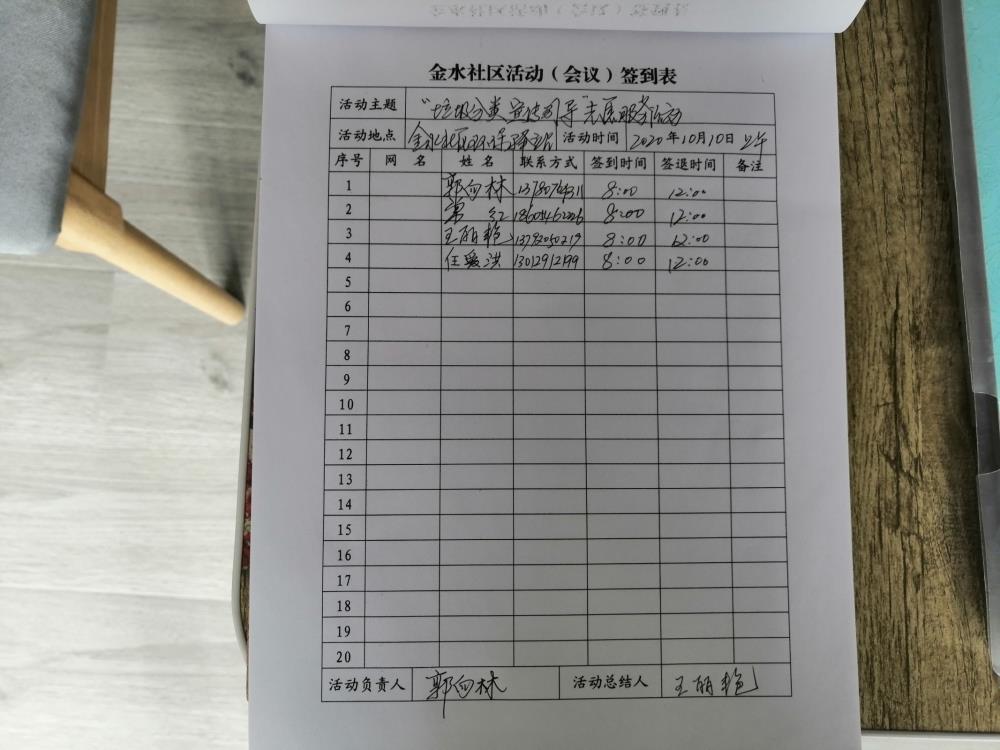 金水社区活动（会议）签到表
活动主题 “垃圾分类宣传引导”志愿服务活动
活动地点 金水社区 活动时间 2020年10月10日 上午
序号 网 名 姓 名 联系方式 签到时间 签退时间 备注
1 郭向林 8:00 12:00
2 常 红 8:00 12:00
3 王丽艳 13792050219 8:00 12:00
4 任爱洪 13012912199 8:00 12:00
5
6
7
8
9
10
11
12
13
14
15
16
17
18
19
20
活动负责人 郭向林 活动总结人 王丽艳